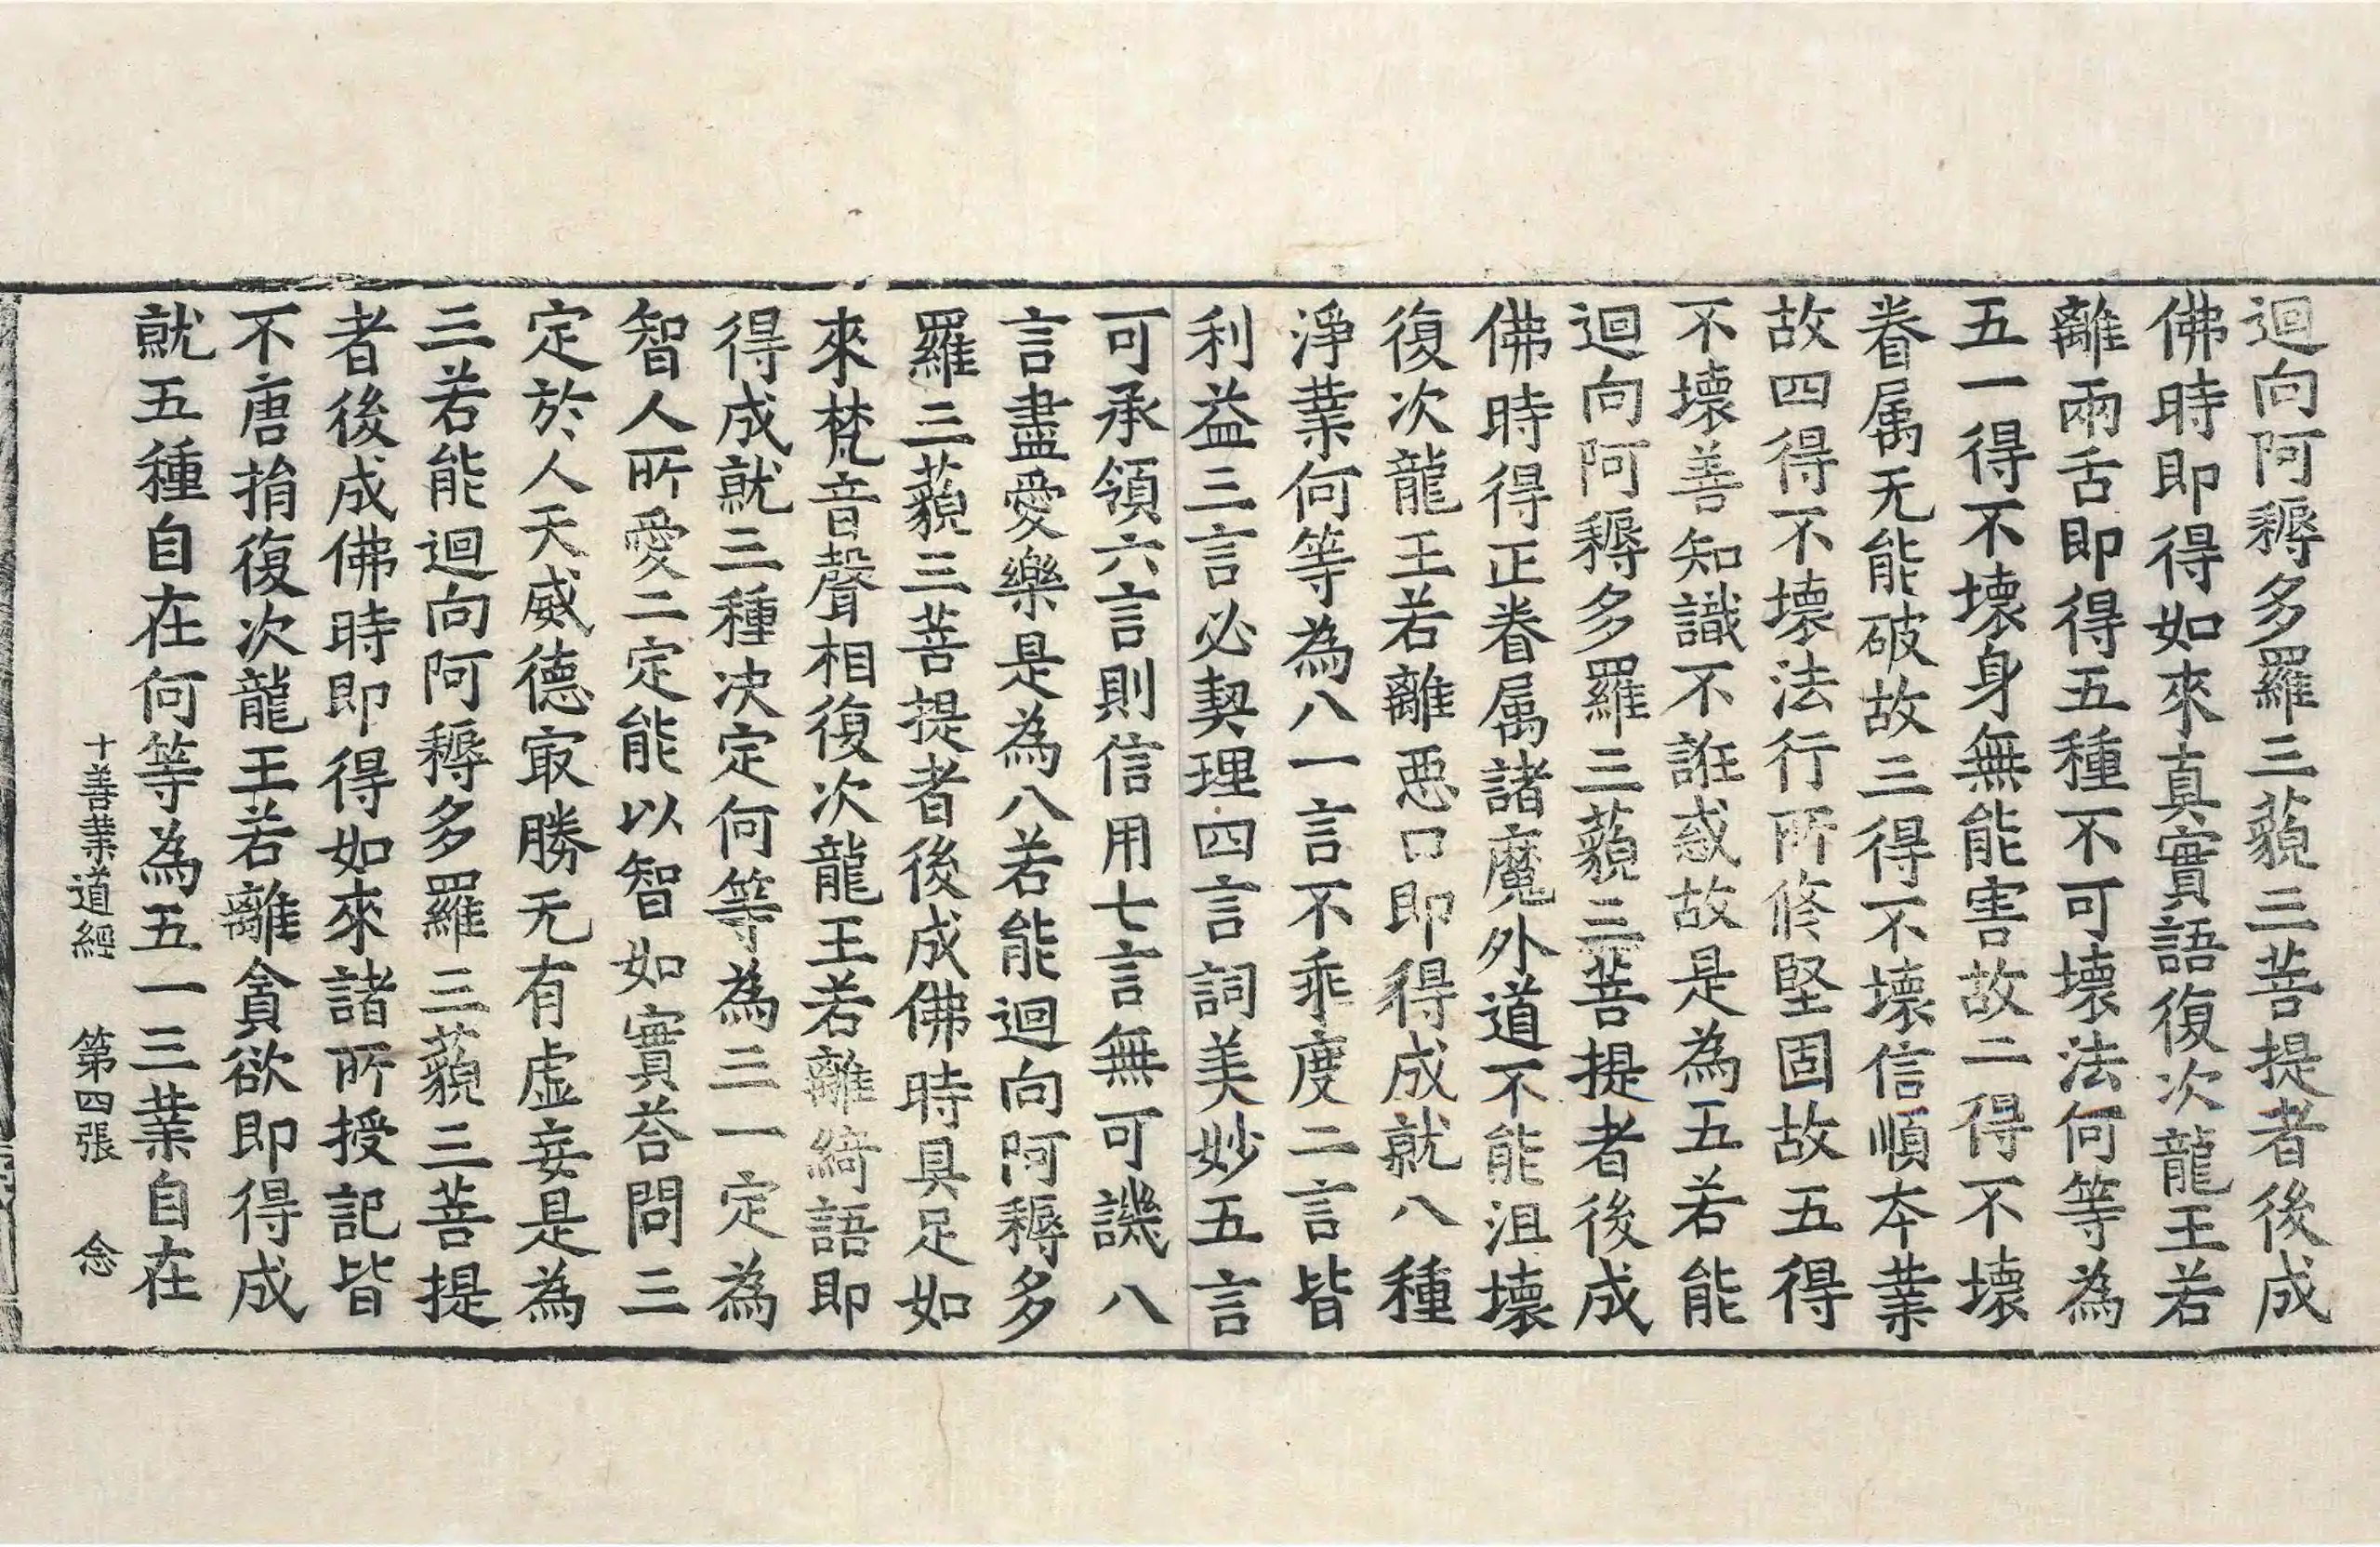 迴向阿耨多羅三藐三菩提者後成
佛時即得如來真實語復次龍王若
離兩舌即得五種不可壞法何等為
五一得不壞身無能害故二得不壞
眷属无能破故三得不壞信順夲業
故四得不壞法行所修堅固故五得
不壞善知識不誑惑故是為五若能
迴向阿耨多羅三藐三菩提者後成
佛時得正眷属諸魔外道不能沮壞
復次龍王若離惡口即得成就八種
淨業何等為八一言不乖度二言皆
利益三言必契理四言詞美妙五言
可承領六言則信用七言無可譏八
言盡愛樂是為八若能迴向阿耨多
羅三藐三菩提者後成佛時具足如
來梵音聲相復次龍王若離綺語即
得成就三種决定何等為三一定為
智人所愛二定能以智如實荅問三
定於人天威德寂勝无有虛妄是為
三若能迴向阿耨多羅三藐三菩提
者後成佛時即得如來諸所授記皆
不唐捐復次龍王若離貪欲即得成
就五種自在何等為五一三業自在
十善業道經 第四張 念